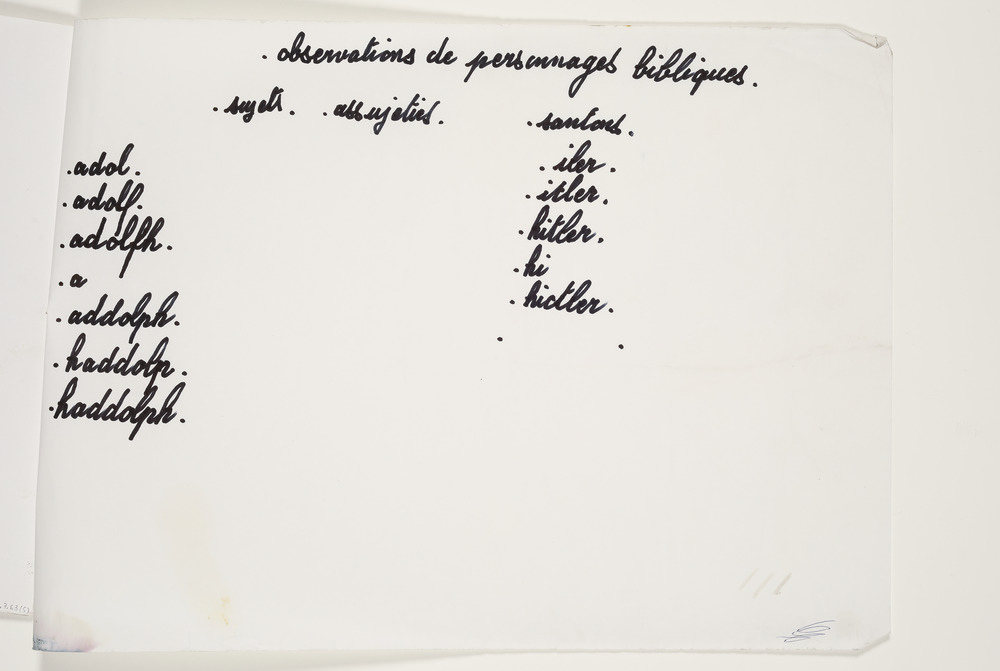 . observations de personnages bibliques .
. sujets . . assujetis . . santons .
. adol . . iler .
. adolf . . itler .
. adolfh . . hitler .
. a . hi
. addolph . . hictler .
. haddolp . . .
. haddolph .